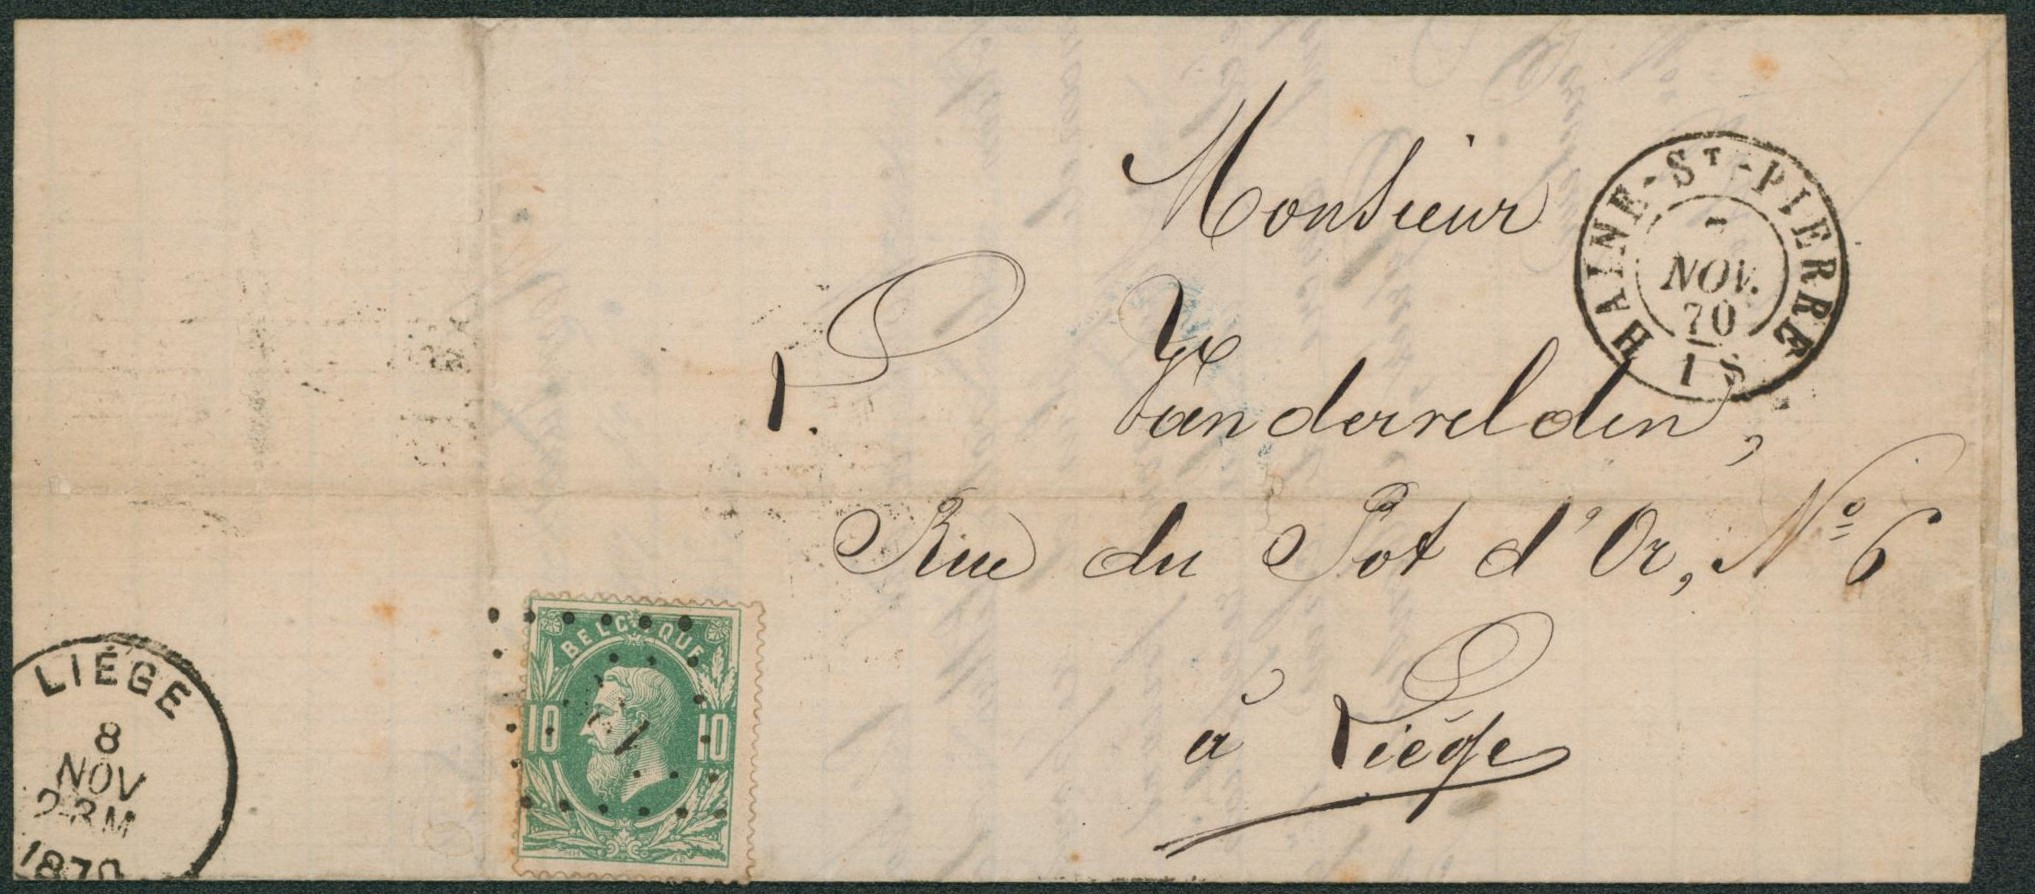 Monsieur
P. Vandervelden,
Rue du Pot d'Or, Nº 6
à Liége
HAINE-Sᵀ-PIERRE
NOV.
70
1 S
BELGIQUE
10 10
LIÉGE
8
NOV
2-3M
1870